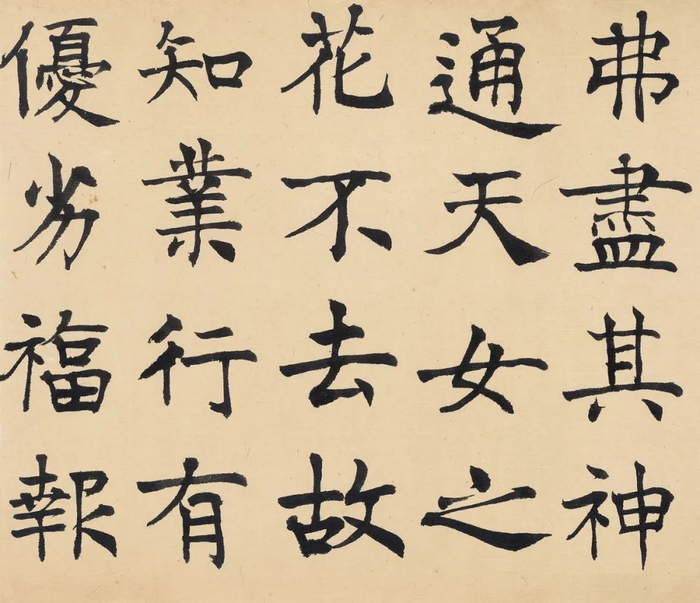 弗盡其神
通天女之
花不去故
知業行有
優劣福報